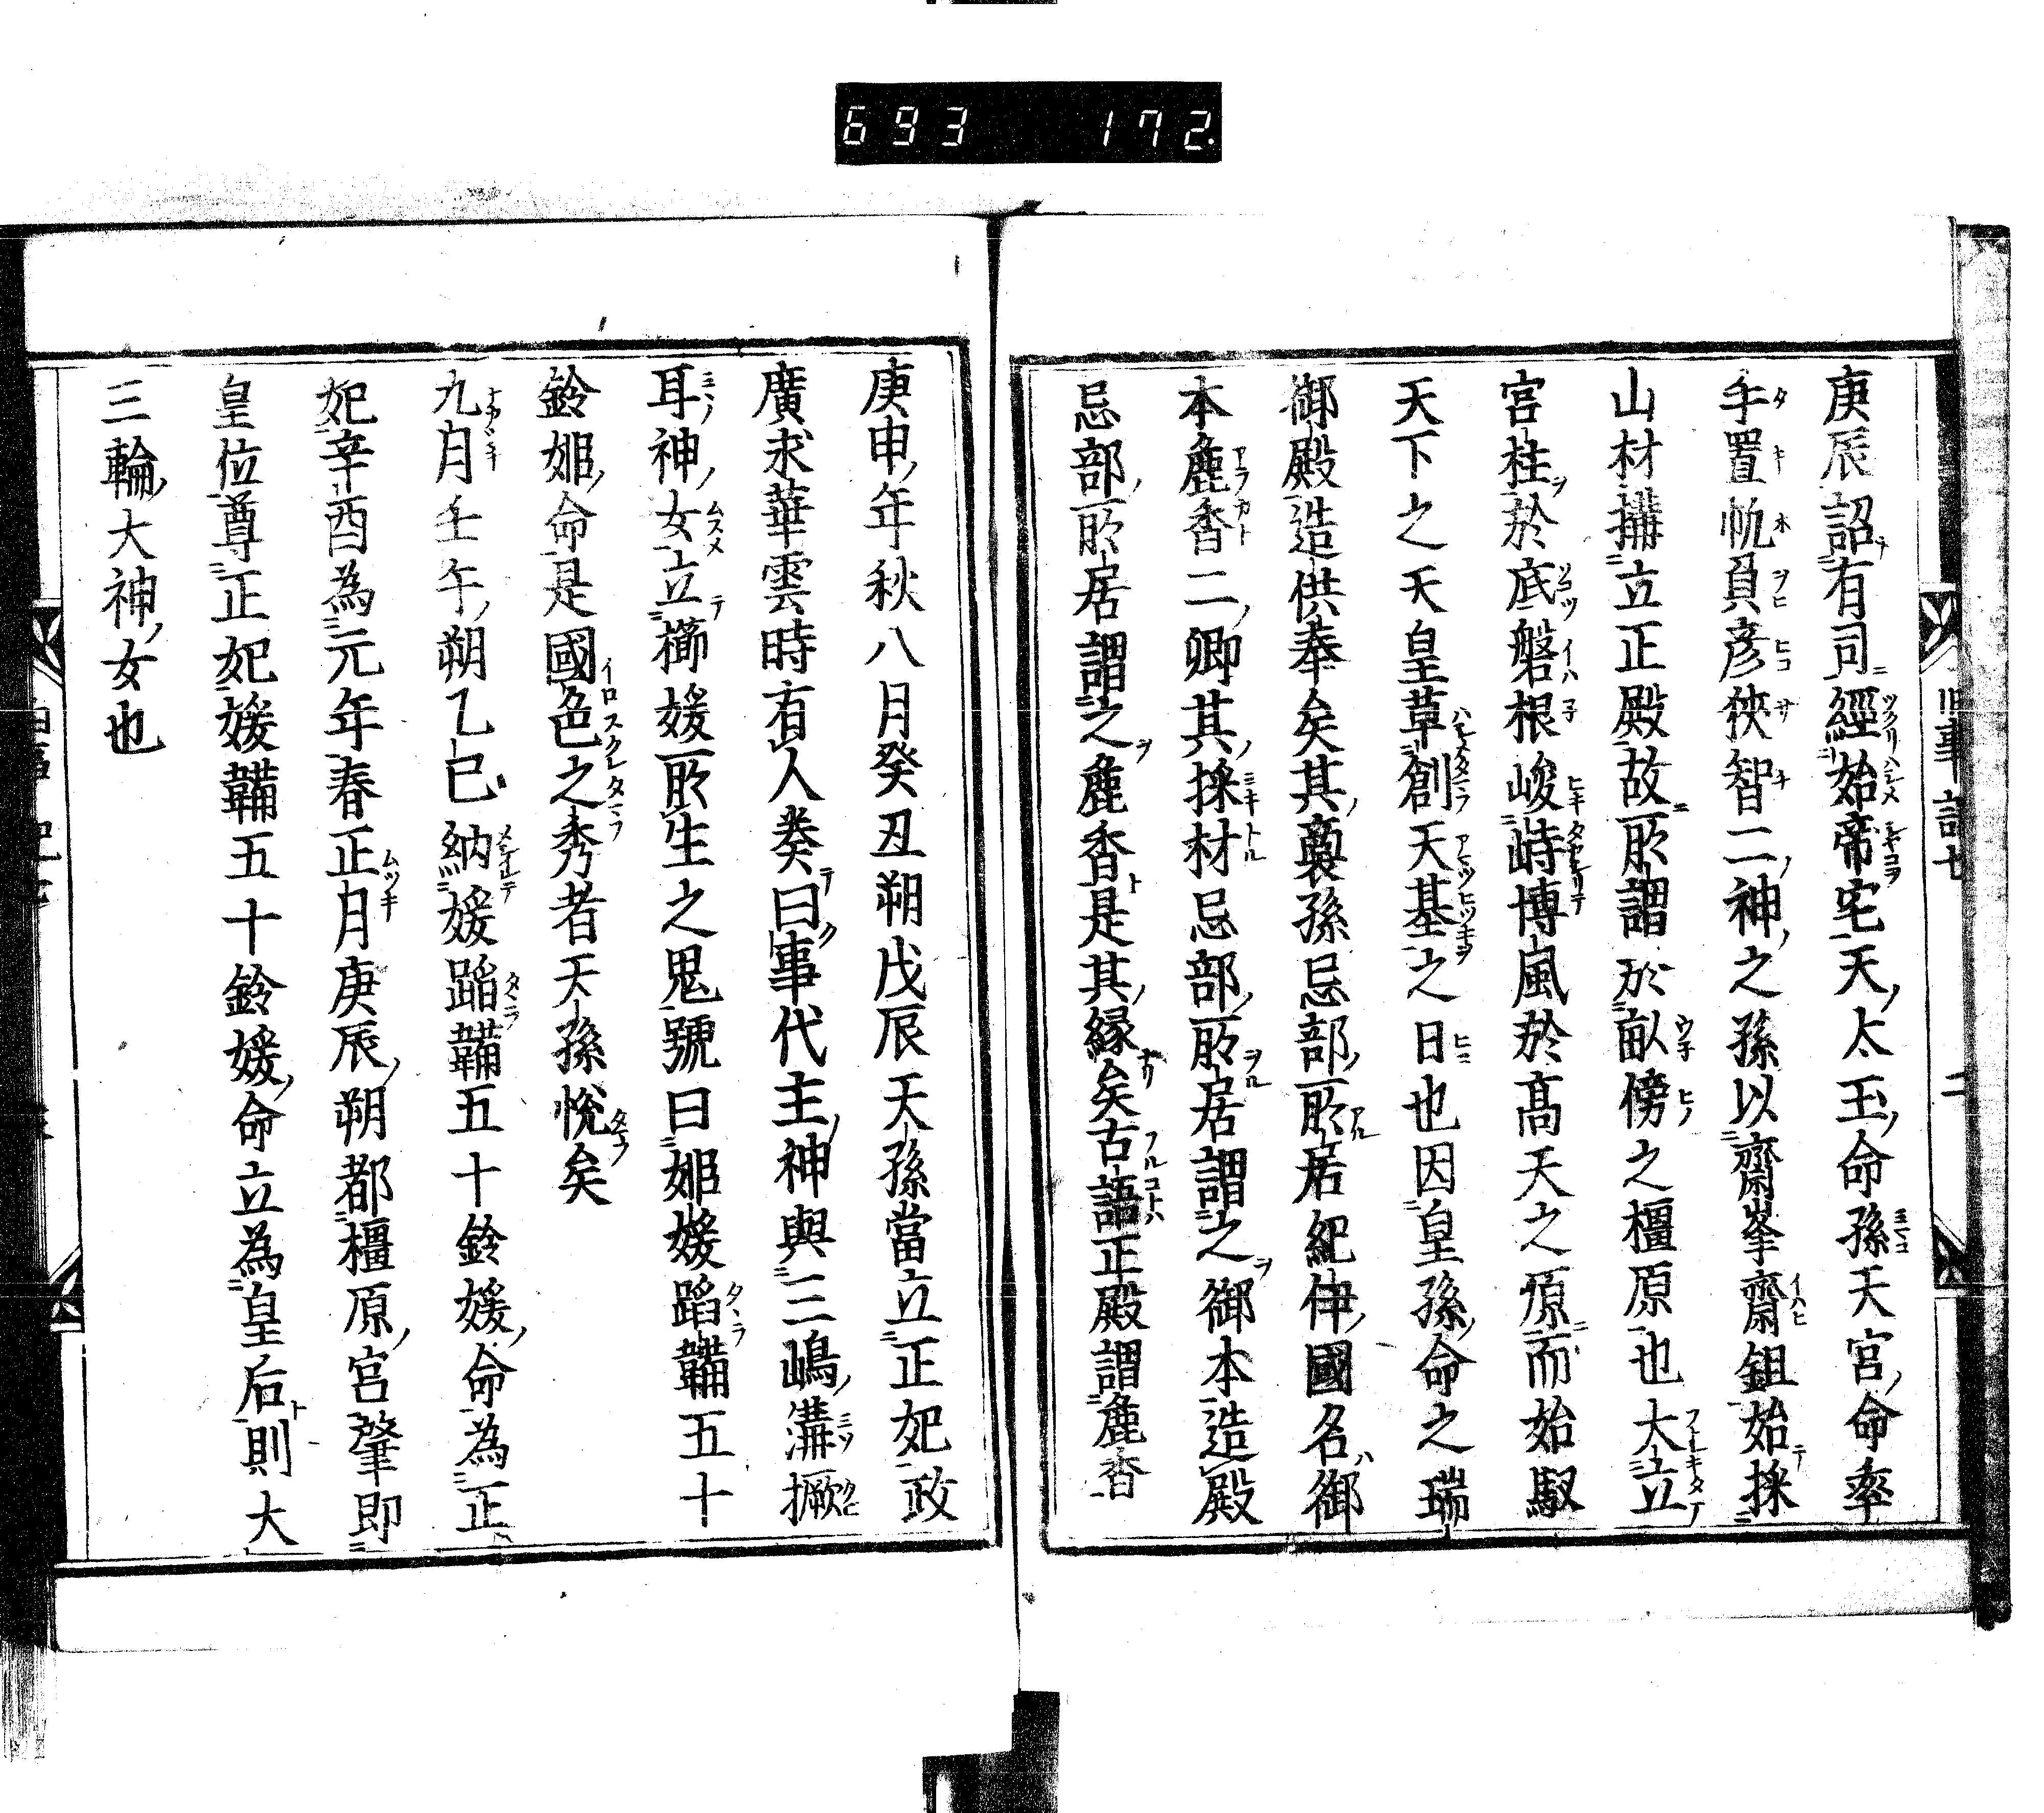 693 172
庚辰詔有司經始帝宅天太玉命孫天宮命率
手置帆負彦狹智二神之孫以齋峯齋鉏始採
山材搆立正殿故所謂於畝傍之橿原也大立
宮柱於底磐根峻峙博風於高天之原而始馭
天下之天皇草創天基之日也因皇孫命之瑞
御殿造供奉矣其裔孫忌部所居紀伊國名御
本麁香二郷其採材忌部所居謂之御本造殿
忌部所居謂之麁香是其縁矣古語正殿謂麁香
庚申年秋八月癸丑朔戊辰天孫當立正妃政
廣求華雲時有人奏曰事代主神與三嶋溝橛
耳神女立櫛媛所生之児號曰姫媛蹈韛五十
鈴姫命是國色之秀者天孫悦矣
九月壬午朔乙巳納媛蹈韛五十鈴媛命為正
妃辛酉為元年春正月庚辰朔都橿原宮肇即
皇位尊正妃媛韛五十鈴媛命立為皇后則大
三輪大神女也